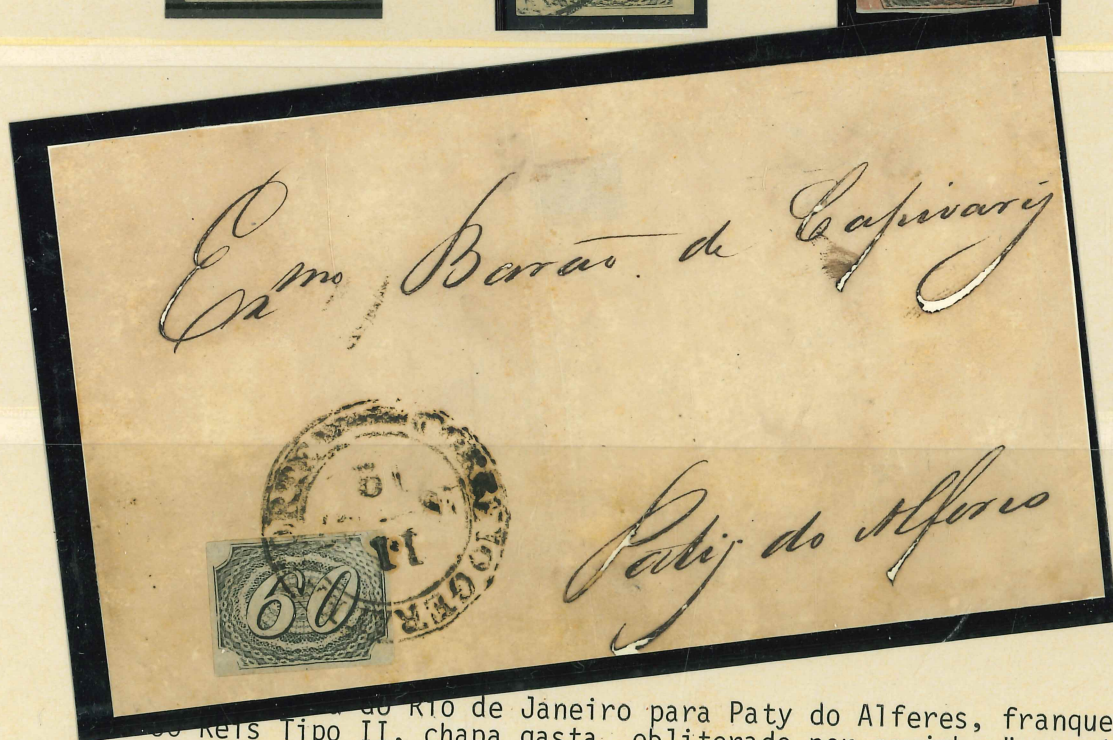 Exmo Barão de Capivary
Paty do Alferes
CORREIO GERAL
19
11
60
do Rio de Janeiro para Paty do Alferes, franque
Reis Tipo II, chapa gasta, obliterado